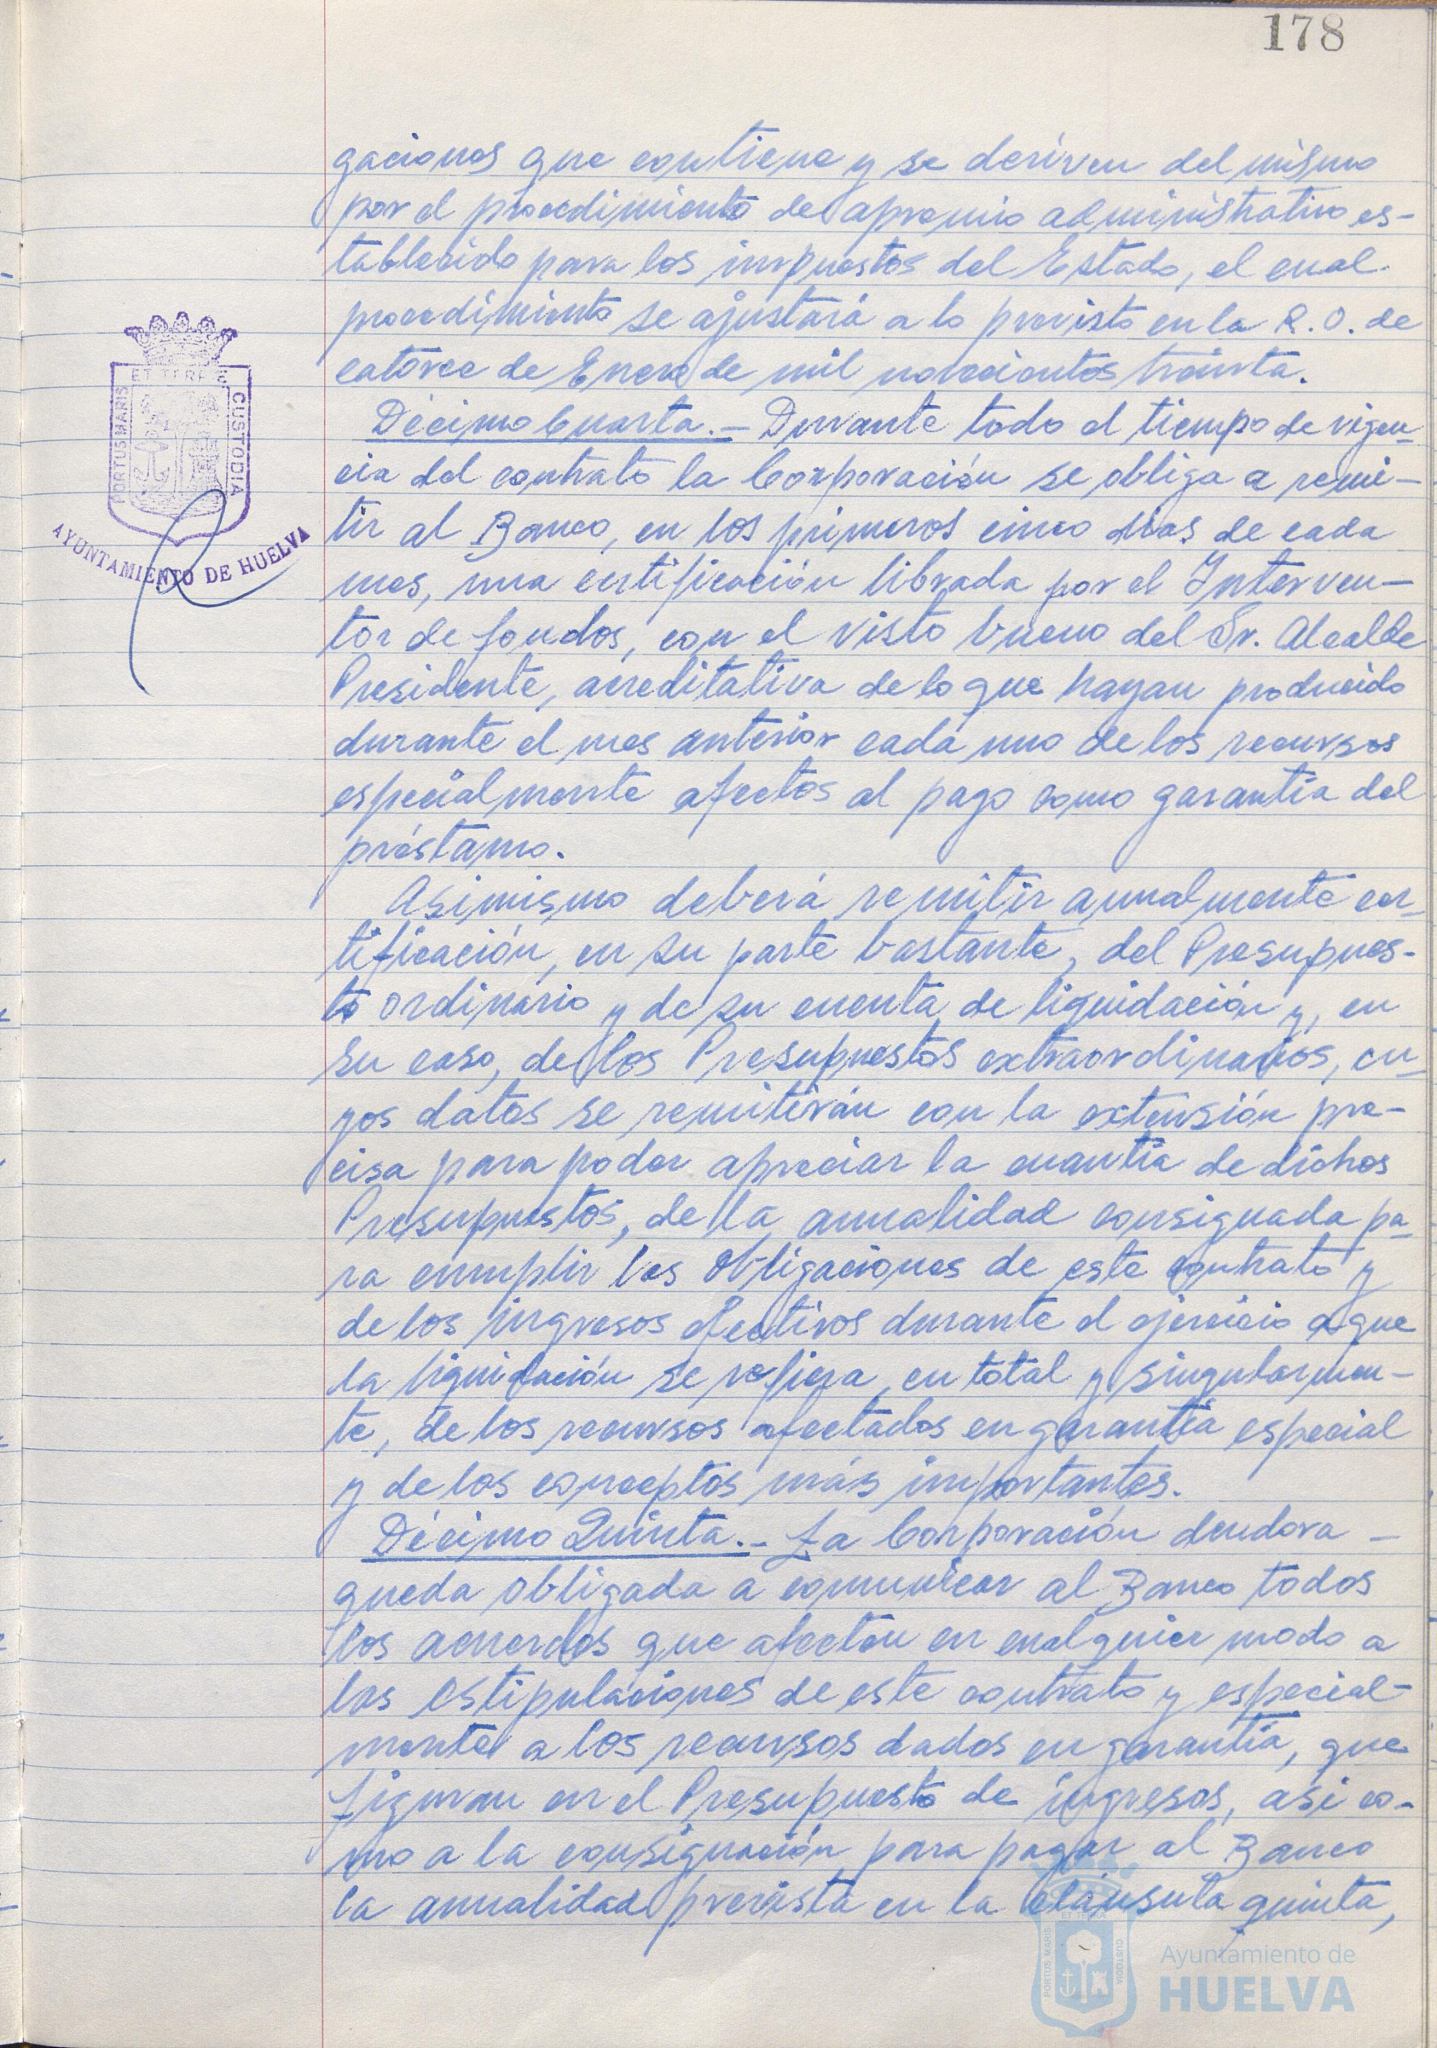 178
gaciones que contiene y se deriven del mismo
por el procedimiento de apremio administrativo es-
tablecido para los impuestos del Estado, el cual
procedimiento se ajustará a lo previsto en la R. O. de
catorce de Enero de mil novecientos treinta.
Décimo Cuarta.- Durante todo el tiempo de vigen-
cia del contrato la Corporación se obliga a remi-
tir al Banco, en los primeros cinco días de cada
mes, una certificación librada por el Interven-
tor de fondos, con el visto bueno del Sr. Alcalde
Presidente, acreditativa de lo que hayan producido
durante el mes anterior cada uno de los recursos
especialmente afectos al pago como garantía del
préstamo.
Asimismo deberá remitir anualmente cer-
tificación, en su parte bastante, del Presupues-
to ordinario y de su cuenta de liquidación y, en
su caso, de los Presupuestos extraordinarios, cu-
yos datos se remitirán con la extensión pre-
cisa para poder apreciar la cuantía de dichos
Presupuestos, de la anualidad consignada pa-
ra cumplir las obligaciones de este contrato y
de los ingresos efectivos durante el ejercicio a que
la liquidación se refiera, en total y singularmen-
te, de los recursos afectados en garantía especial
y de los conceptos más importantes.
Décimo Quinta.- La Corporación deudora -
queda obligada a comunicar al Banco todos
los acuerdos que afecten en cualquier modo a
las estipulaciones de este contrato y especial-
mente a los recursos dados en garantía, que
figuran en el Presupuesto de ingresos, así co-
mo a la consignación para pagar al Banco
la anualidad prevista en la cláusula quinta,
PORTUS MARIS ET TERRE CUSTODIA
AYUNTAMIENTO DE HUELVA
PORTUS MARIS ET TERRAE CUSTODIA
Ayuntamiento de
HUELVA